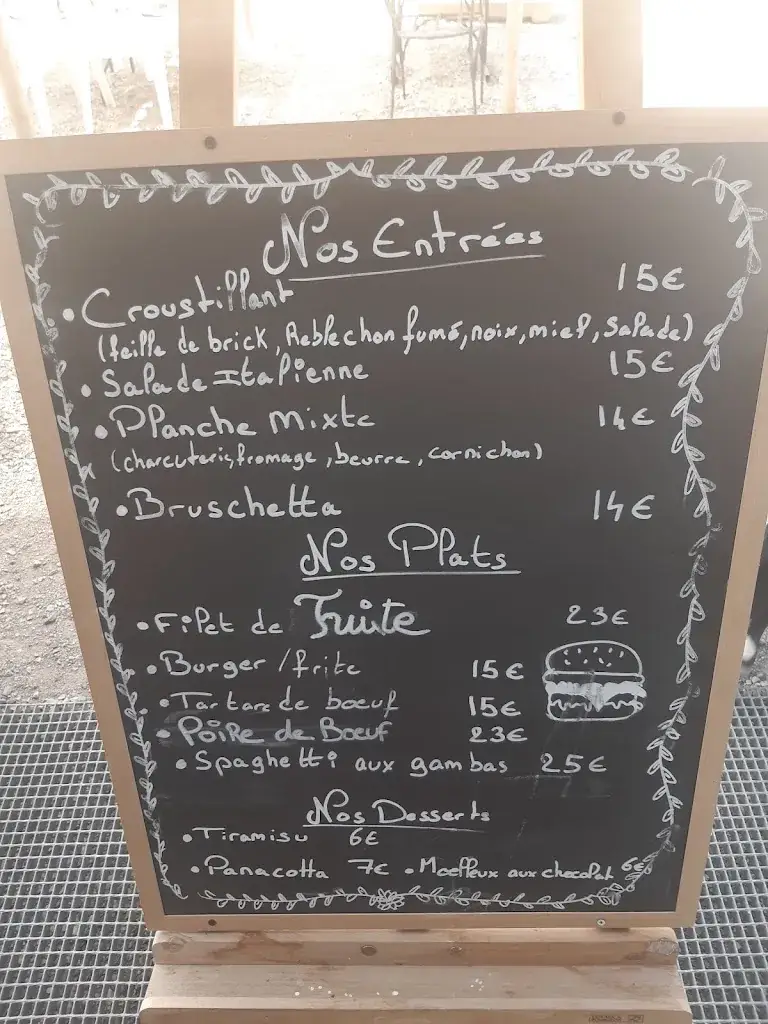 Nos Entrées
• Croustillant 15€
(feille de brick, Reblechon fumé, noix, miel, Salade)
• Salade Italienne 15€
• Planche Mixte 14€
(charcuterie, fromage, beurre, cornichon)
• Bruschetta 14€
Nos Plats
• Filet de Truite 23€
• Burger / frite 15€
• Tartare de bœuf 15€
• Poire de Bœuf 23€
• Spaghetti aux gambas 25€
Nos Desserts
• Tiramisu 6€
• Panacotta 7€ • Moelleux aux chocolat 6€